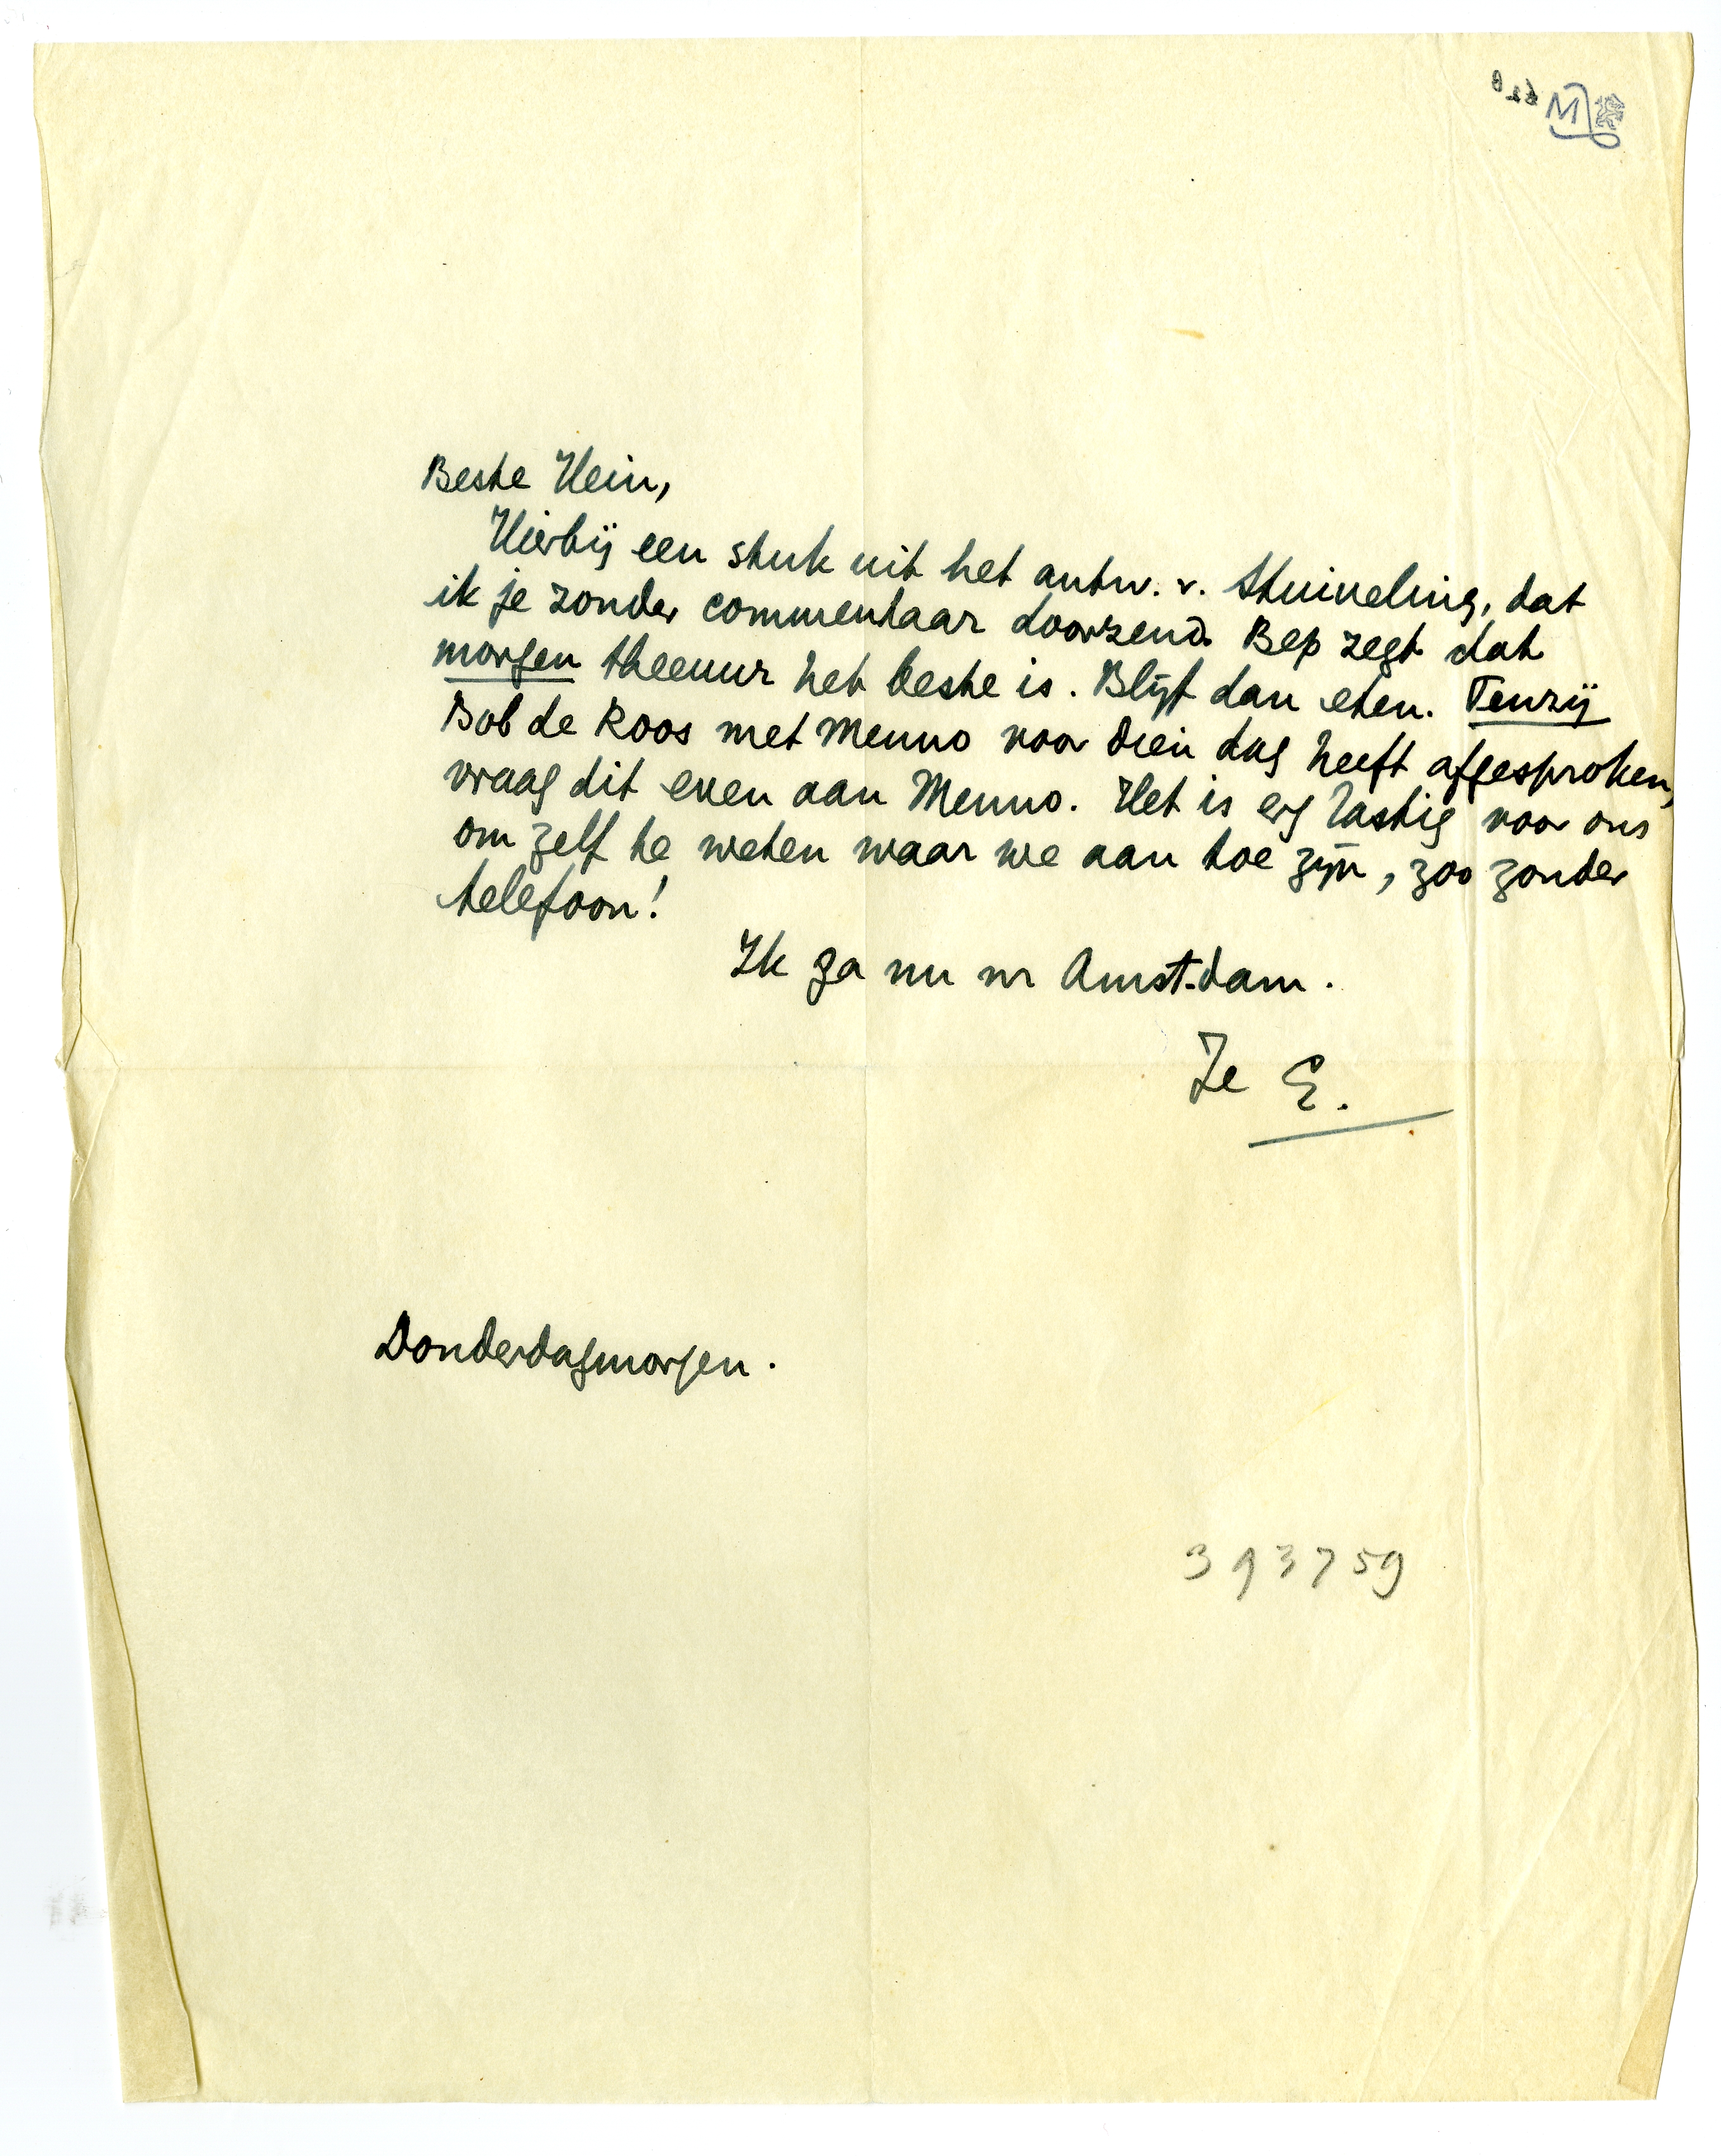 Beste Hein,
Hierbij een stuk uit het antw. v. Stuiveling, dat
ik je zonder commentaar doorzend. Bep zegt dat
morgen theeuur het beste is. Blijf dan eten. Tenzij
Bob de Roos met Menno voor dien dag heeft afgesproken,
vraag dit even aan Menno. Het is erg lastig voor ons
om zelf te weten waar we aan toe zijn, zoo zonder
telefoon!
Ik ga nu nr Amst.dam.
Je E.
Donderdagmorgen.
393759